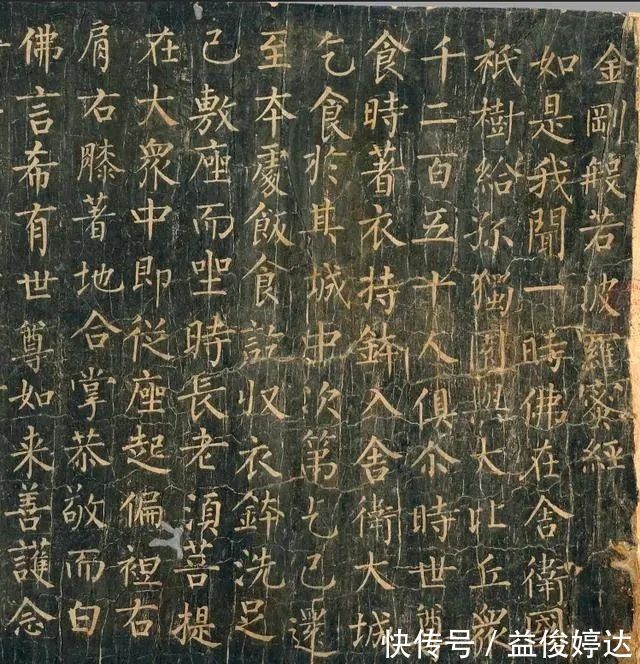 金剛般若波羅蜜經
如是我聞一時佛在舍衛國
祇樹給孤獨園與大比丘衆
千二百五十人俱尒時世尊
食時著衣持鉢入舍衛大城
乞食於其城中次第乞已還
至本處飯食訖收衣鉢洗足
已敷座而坐時長老須菩提
在大衆中即從座起偏袒右
肩右膝著地合掌恭敬而白
佛言希有世尊如来善護念
快传号 / 益俊婷达